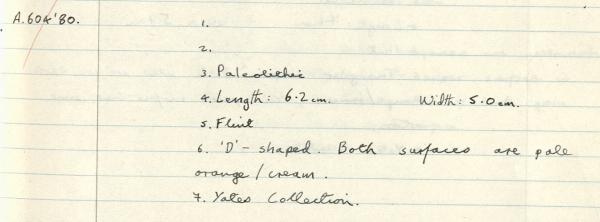 A.604'80.
1.
2.
3. Paleolithic
4. Length: 6.2cm. Width: 5.0cm.
5. Flint
6. 'D'-shaped. Both surfaces are pale
orange/cream.
7. Yates Collection.